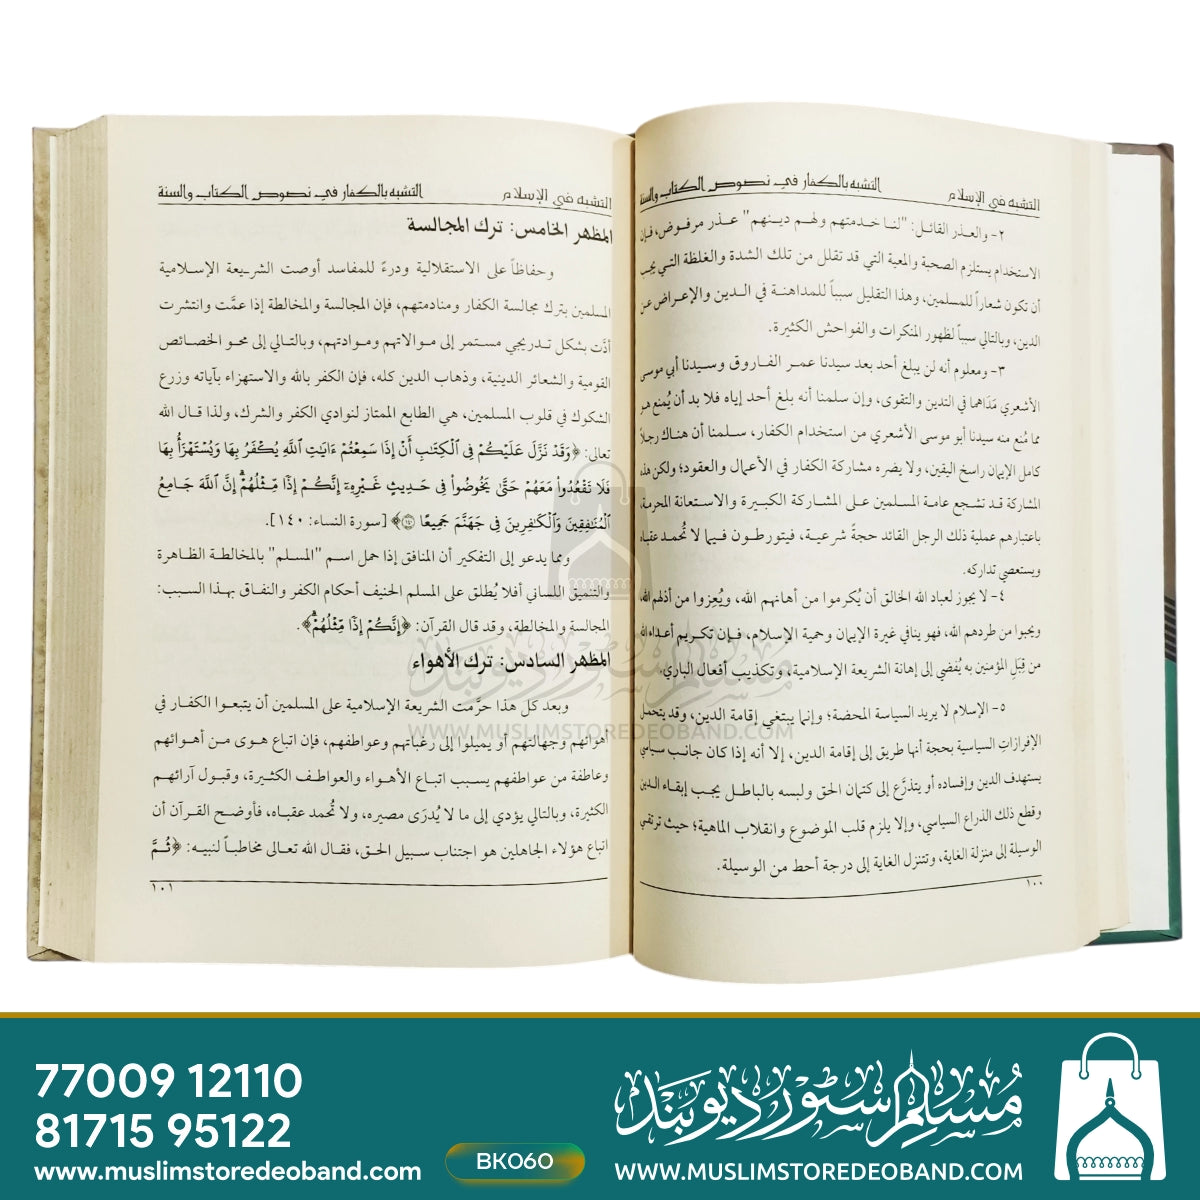 التشبه في الإسلام
التشبه بالكفار في نصوص الكتاب والسنة
٢- والعذر القائل: "لنا خدمتهم ولهم دينهم" عذر مرفوض، فإن
الاستخدام يستلزم الصحبة والمعية التي قد تقلل من تلك الشدة والغلظة التي يجب
أن تكون شعاراً للمسلمين، وهذا التقليل سبباً للمداهنة في الدين والإعراض عن
الدين، وبالتالي سبباً لظهور المنكرات والفواحش الكثيرة.
٣- ومعلوم أنه لن يبلغ أحد بعد سيدنا عمر الفاروق وسيدنا أبي موسى
الأشعري مَدَاهما في التدين والتقوى، وإن سلمنا أنه بلغ أحد إياه فلا بد أن يُمنع هو
مما مُنع منه سيدنا أبو موسى الأشعري من استخدام الكفار، سلمنا أن هناك رجلاً
كامل الإيمان راسخ اليقين، ولا يضره مشاركة الكفار في الأعمال والعقود؛ ولكن هذه
المشاركة قد تشجع عامة المسلمين على المشاركة الكبيرة والاستعانة المحرمة،
باعتبارهم عملية ذلك الرجل القائد حجةً شرعية، فيتورطون فيما لا تُحمد عقباه
ويستعصي تداركه.
٤- لا يجوز لعباد الله الخالق أن يُكرموا من أهانهم الله، ويُعِزوا من أذلهم الله،
ويحبوا من طردهم الله، فهو ينافي غيرة الإيمان وحمية الإسلام، فإن تكريم أعداء الله
من قِبَلِ المؤمنين به يُفضي إلى إهانة الشريعة الإسلامية، وتكذيب أفعال الباري.
٥- الإسلام لا يريد السياسة المحضة؛ وإنما يبتغي إقامة الدين، وقد يتحمل
الإفرازات السياسية بحجة أنها طريق إلى إقامة الدين، إلا أنه إذا كان جانب سياسي
يستهدف الدين وإفساده أو يتذرَّع إلى كتمان الحق ولبسه بالباطل يجب إبقاء الدين
وقطع ذلك الذراع السياسي، وإلا يلزم قلب الموضوع وانقلاب الماهية؛ حيث ترتقي
الوسيلة إلى منزلة الغاية، وتتنزل الغاية إلى درجة أحط من الوسيلة.
١٠٠
التشبه في الإسلام
التشبه بالكفار في نصوص الكتاب والسنة
المظهر الخامس: ترك المجالسة
وحفاظاً على الاستقلالية ودرءً للمفاسد أوصت الشريعة الإسلامية
المسلمين بترك مجالسة الكفار ومنادمتهم، فإن المجالسة والمخالطة إذا عمَّت وانتشرت
أدَّت بشكل تدريجي مستمر إلى موالاتهم وموادتهم، وبالتالي إلى محو الخصائص
القومية والشعائر الدينية، وذهاب الدين كله، فإن الكفر بالله والاستهزاء بآياته وزرع
الشكوك في قلوب المسلمين، هي الطابع الممتاز لنوادي الكفر والشرك، ولذا قال الله
تعالى: ﴿وَقَدْ نَزَّلَ عَلَيْكُمْ فِي ٱلْكِتَٰبِ أَنْ إِذَا سَمِعْتُمْ ءَايَٰتِ ٱللَّهِ يُكْفَرُ بِهَا وَيُسْتَهْزَأُ بِهَا
فَلَا تَقْعُدُوا۟ مَعَهُمْ حَتَّىٰ يَخُوضُوا۟ فِي حَدِيثٍ غَيْرِهِۦٓ إِنَّكُمْ إِذًا مِّثْلُهُمْ ۗ إِنَّ ٱللَّهَ جَامِعُ
ٱلْمُنَٰفِقِينَ وَٱلْكَٰفِرِينَ فِي جَهَنَّمَ جَمِيعًا ١٤٠﴾ [سورة النساء: ١٤٠].
ومما يدعو إلى التفكير أن المنافق إذا حمل اسم "المسلم" بالمخالطة الظاهرة
والتنميق اللساني أفلا يُطلق على المسلم الحنيف أحكام الكفر والنفاق بهذا السبب:
المجالسة والمخالطة، وقد قال القرآن: ﴿إِنَّكُمْ إِذًا مِّثْلُهُمْ ۗ﴾.
المظهر السادس: ترك الأهواء
وبعد كل هذا حرَّمت الشريعة الإسلامية على المسلمين أن يتبعوا الكفار في
أهوائهم وجهالتهم أو يميلوا إلى رغباتهم وعواطفهم، فإن اتباع هوى من أهوائهم
وعاطفة من عواطفهم يسبب اتباع الأهواء والعواطف الكثيرة، وقبول آرائهم
الكثيرة، وبالتالي يؤدي إلى ما لا يُدرَى مصيره، ولا تُحمد عقباه، فأوضح القرآن أن
اتباع هؤلاء الجاهلين هو اجتناب سبيل الحق، فقال الله تعالى مخاطباً لنبيه: ﴿ثُمَّ
١٠١
مسلم سٹور دیوبند
WWW.MUSLIMSTOREDEOBAND.COM
77009 12110
81715 95122
www.muslimstoredeoband.com
BK060
مسلم سٹور دیوبند
WWW.MUSLIMSTOREDEOBAND.COM